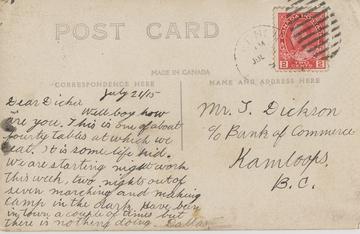 POST CARD
MADE IN CANADA
CORRESPONDENCE HERE
NAME AND ADDRESS HERE
July 21/15
Dear Dicker
Well boy how
are you. This is one of about
fourty tables at which we
eat. It is some life kid.
We are starting night work
this week, two nights out of
seven marching and making
camp in the dark. Have been
in town a couple of times but
there is nothing doing. Dallas
Mr. T. Dickson
c/o Bank of Commerce
Kamloops,
B.C.